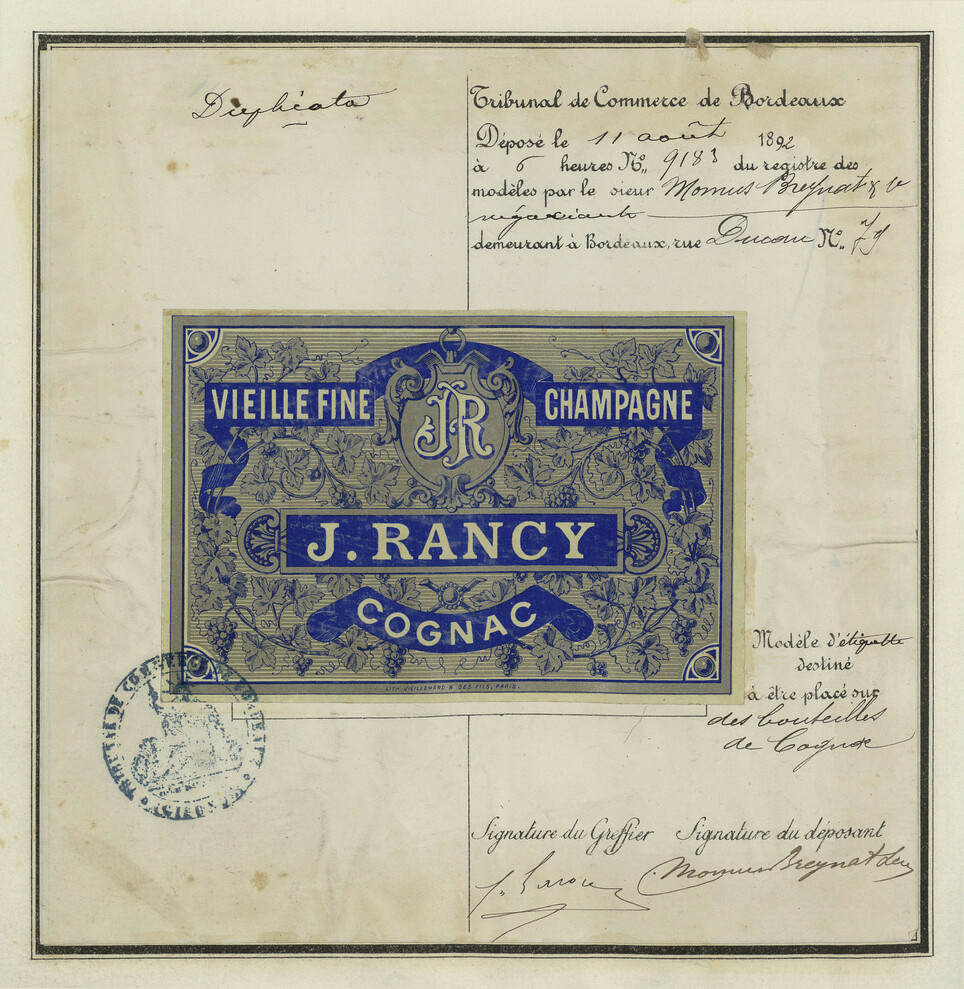 Duplicata
Tribunal de Commerce de Bordeaux
Déposé le 11 août 1892
à 6 heures N° 9183 du registre des
modèles par le sieur Momus Breynat & Ce
négociants
demeurant à Bordeaux, rue Ducau N° 79
VIEILLE FINE CHAMPAGNE
JR
J. RANCY
COGNAC
LITH. VIEILLEMARD & SES FILS, PARIS.
Modèle d'étiquette
destiné
à être placé sur
des bouteilles
de Cognac
TRIBUNAL DE COMMERCE DE BORDEAUX
Signature du Greffier Signature du déposant
Momus Breynat